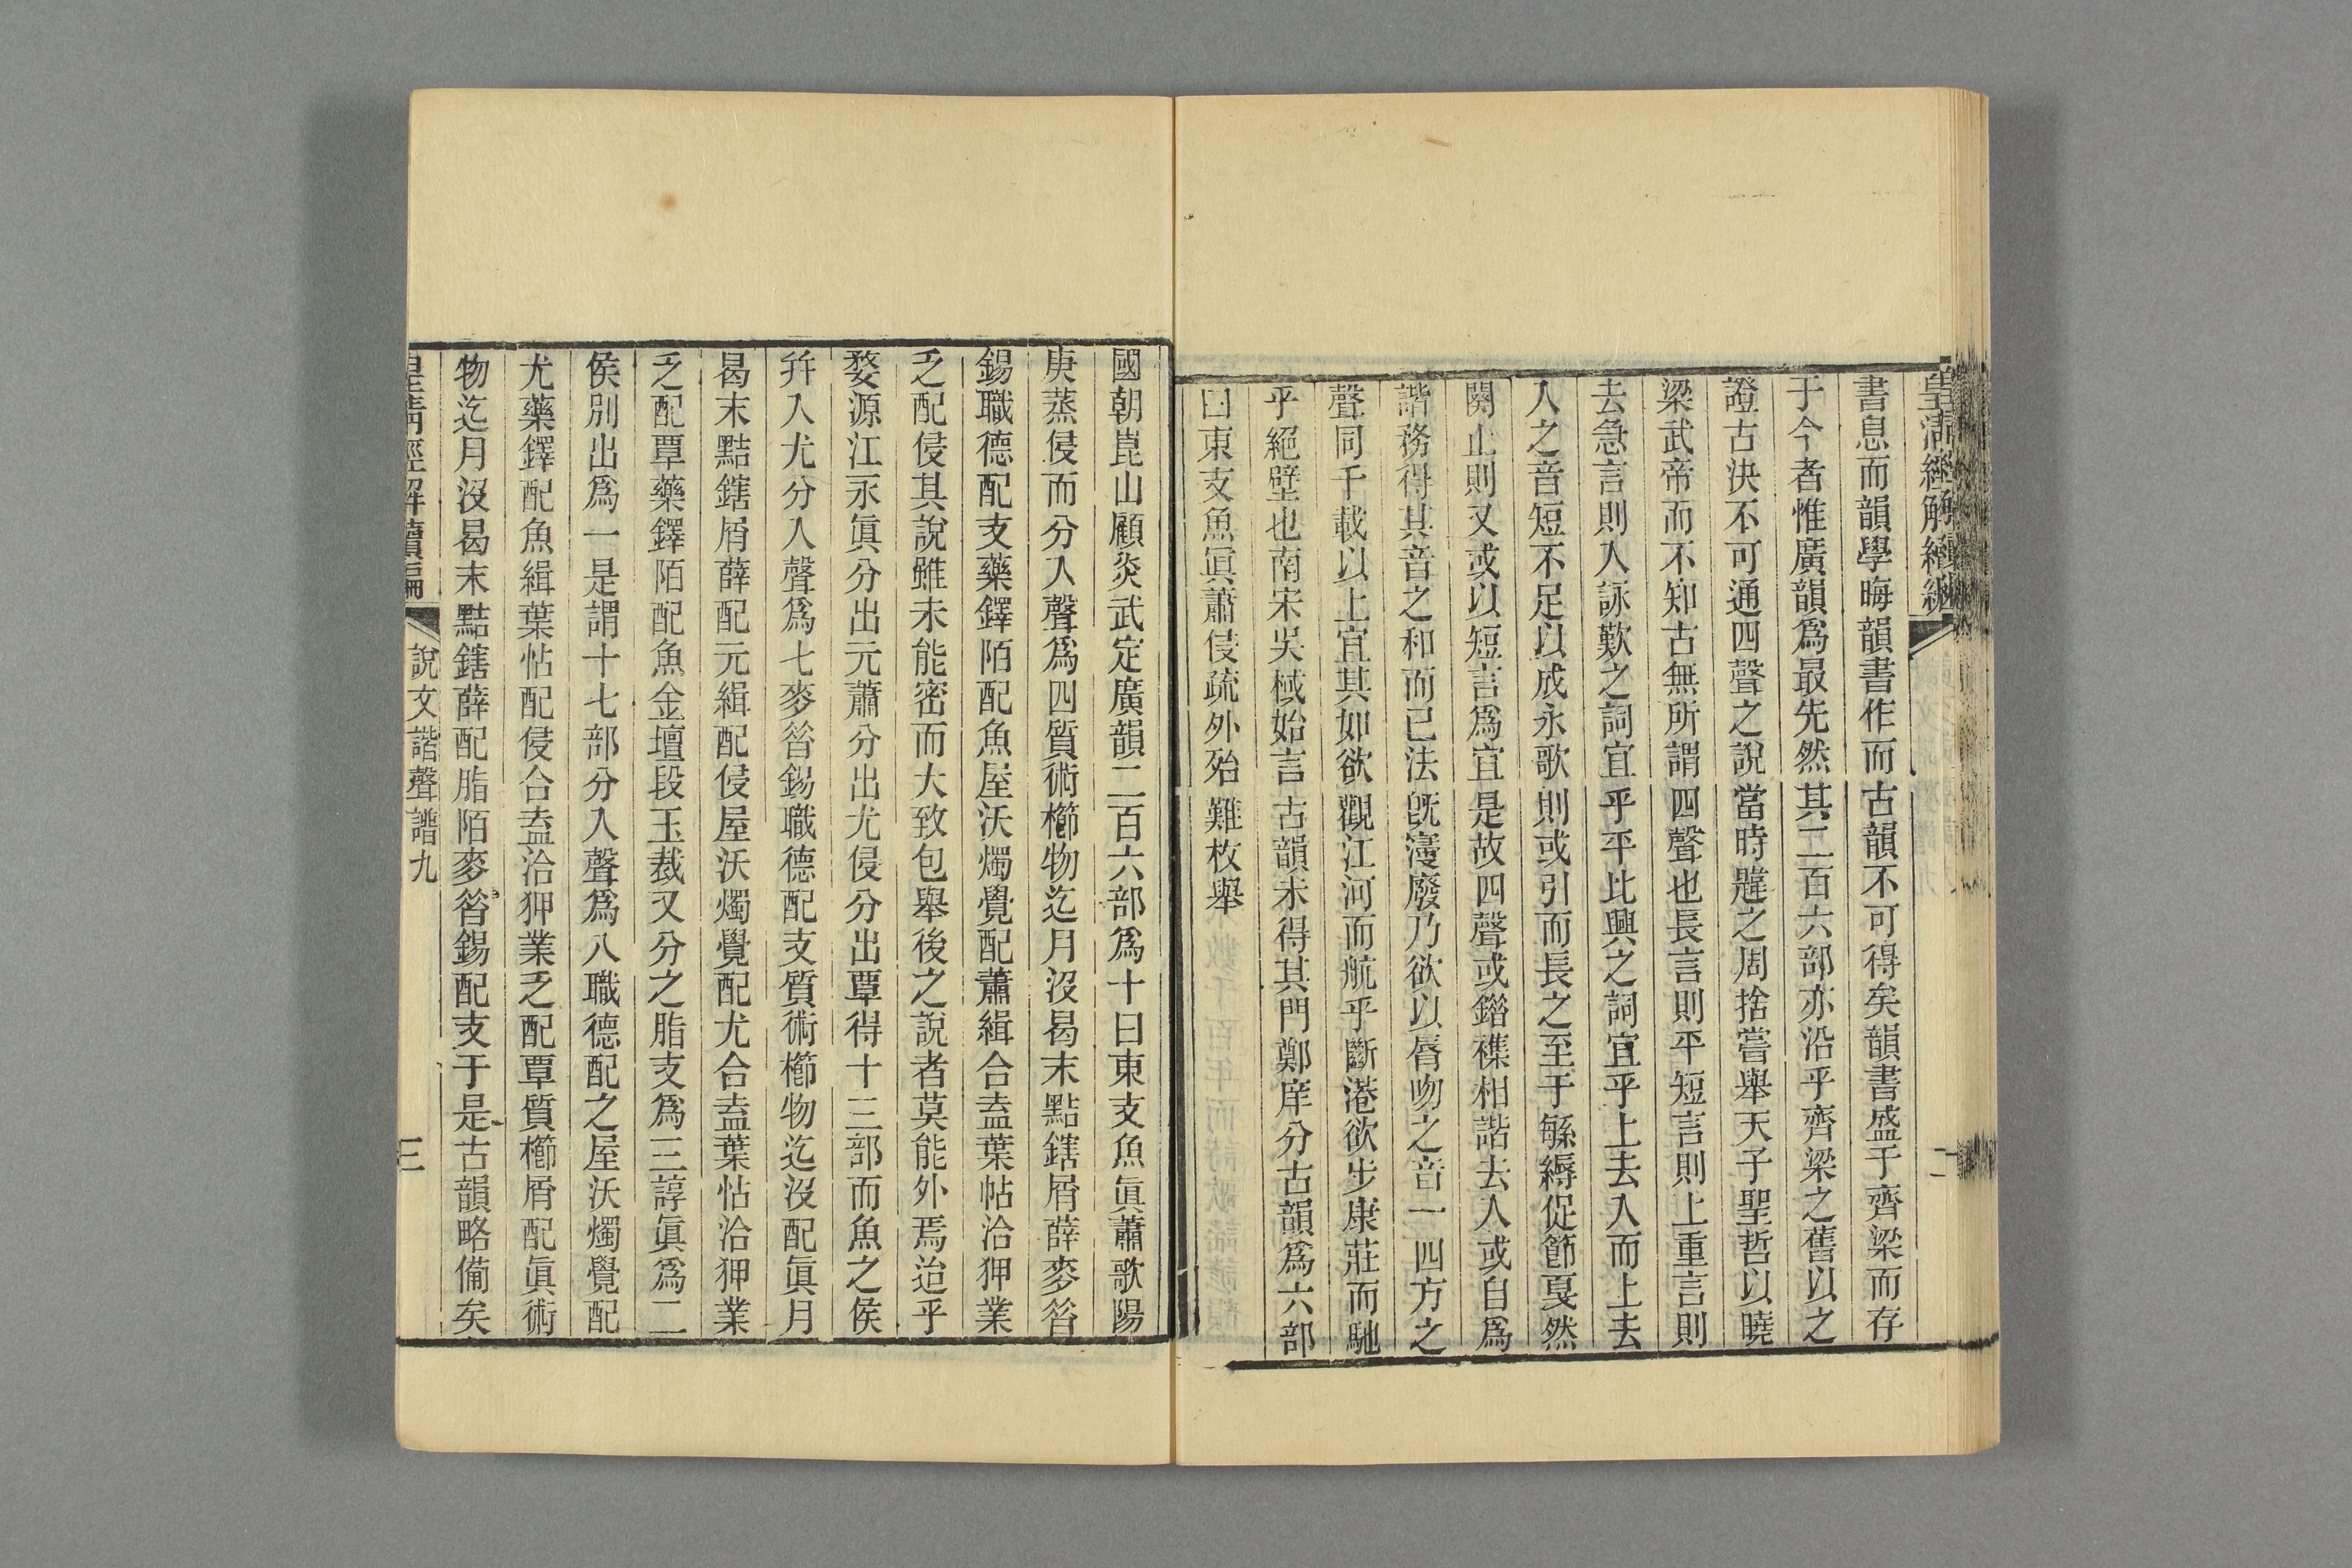 皇清經解續編
二
書息而韻學晦韻書作而古韻不可得矣韻書盛于齊梁而存
于今者惟廣韻爲最先然其二百六部亦沿乎齊梁之舊以之
證古決不可通四聲之說當時韙之周捨嘗舉天子聖哲以曉
梁武帝而不知古無所謂四聲也長言則平短言則上重言則
去急言則入詠歎之詞宜乎平比興之詞宜乎上去入而上去
入之音短不足以成永歌則或引而長之至于緐縟促節戛然
闋止則又或以短言爲宜是故四聲或錯襍相諧去入或自爲
諧務得其音之和而已法旣寖廢乃欲以脣吻之音一四方之
聲同千載以上宜其如欲觀江河而航乎斷港欲步康莊而馳
乎絕壁也南宋吳棫始言古韻未得其門鄭庠分古韻爲六部
曰東支魚眞蕭侵疏外殆難枚舉
國朝崑山顧炎武定廣韻二百六部爲十曰東支魚眞蕭歌陽
庚蒸侵而分入聲爲四質術櫛物迄月沒曷末黠鎋屑薛麥昔
錫職德配支藥鐸陌配魚屋沃燭覺配蕭緝合盍葉帖洽狎業
乏配侵其說雖未能密而大致包舉後之說者莫能外焉迨乎
婺源江永眞分出元蕭分出尤侵分出覃得十三部而魚之侯
幷入尤分入聲爲七麥昔錫職德配支質術櫛物迄沒配眞月
曷末黠鎋屑薛配元緝配侵屋沃燭覺配尤合盍葉怗洽狎業
乏配覃藥鐸陌配魚金壇段玉裁又分之脂支爲三諄眞爲二
侯別出爲一是謂十七部分入聲爲八職德配之屋沃燭覺配
尤藥鐸配魚緝葉怗配侵合盍洽狎業乏配覃質櫛屑配眞術
物迄月沒曷末黠鎋薛配脂陌麥昔錫配支于是古韻略備矣
皇清經解續編
說文諧聲譜九
三